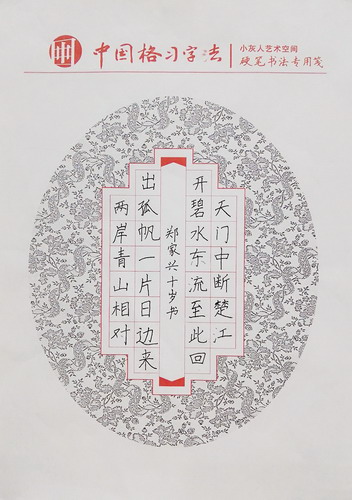 中国格习字法
小灰人艺术空间
硬笔书法专用笺
天门中断楚江
开碧水东流至此回
两岸青山相对
出孤帆一片日边来
郑家兴十岁书